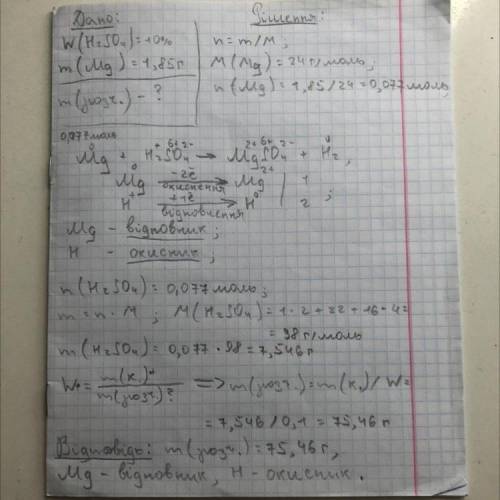 Дано:
W(H₂SO₄) = 10%
m(Mg) = 1,85г
m(розч.) - ?
Рішення:
n = m/M;
M(Mg) = 24 г/моль;
n(Mg) = 1,85/24 = 0,077 моль
0,077 моль
Mg⁰ + H₂⁺S⁶⁺O₄²⁻ → Mg²⁺S⁶⁺O₄²⁻ + H₂⁰,
Mg⁰ -2ē окиснення → Mg²⁺ | 1
H⁺ +1ē відновлення → H⁰ | 2 ;
Mg - відновник;
H - окисник;
n(H₂SO₄) = 0,077 моль;
m = n · M ; M(H₂SO₄) = 1·2 + 32 + 16·4 =
= 98 г/моль
m(H₂SO₄) = 0,077 · 98 = 7,546 г
W = m(к.) / m(розч.)? => m(розч.) = m(к.) / W =
= 7,546 / 0,1 = 75,46 г
Відповідь: m(розч.) = 75,46 г,
Mg - відновник, H - окисник.